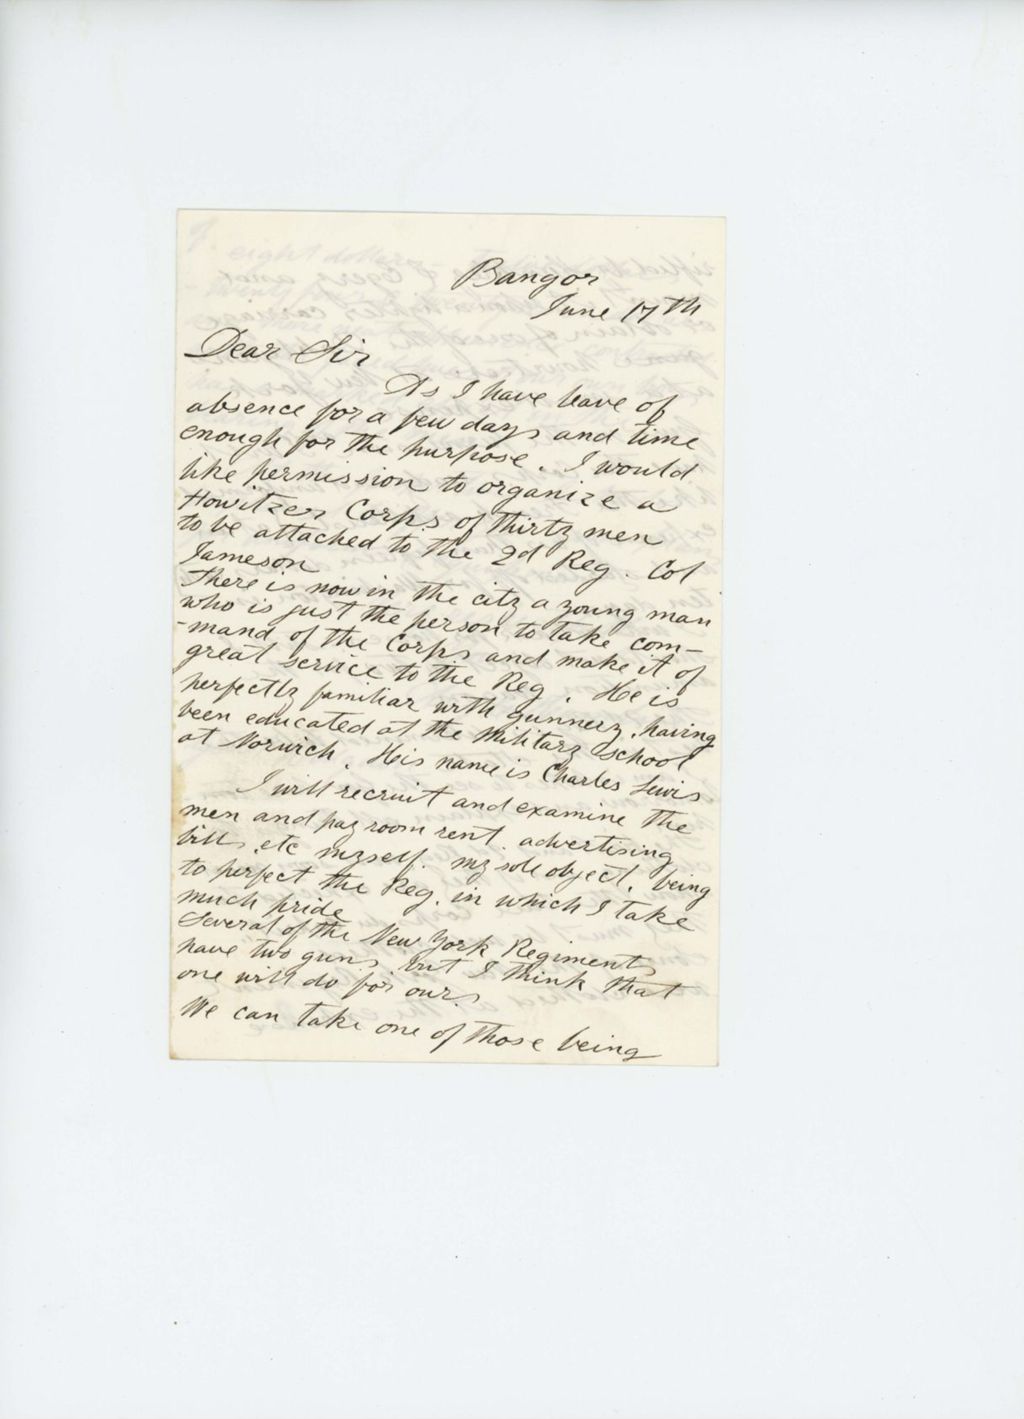 Bangor
June 17th
Dear Sir
As I have leave of
absence for a few days and time
enough for the purpose. I would
like permission to organize a
Howitzer Corps of thirty men
to be attached to the 2d Reg. Col
Jameson
There is now in the city a young man
who is just the person to take com-
-mand of the Corps and make it of
great service to the Reg. He is
perfectly familiar with gunnery, having
been educated at the Military school
at Norwich. His name is Charles Lewis
I will recruit and examine the
men and pay room rent. advertising
bills, etc myself. my sole object, being
to perfect the Reg. in which I take
much pride
Several of the New York Regiments
have two guns, but I think that
one will do for ours
We can take one of those being